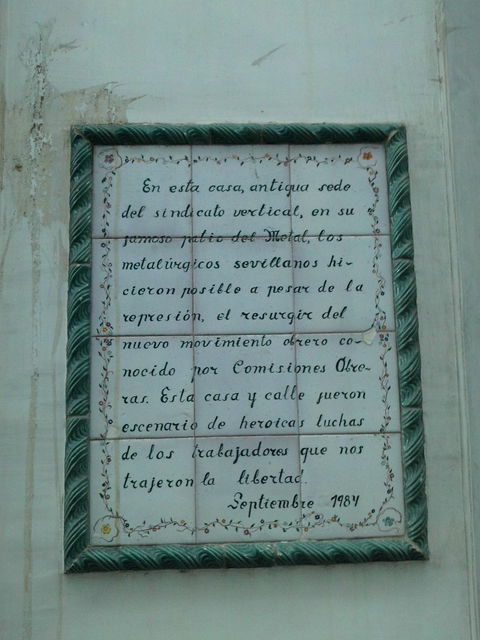 En esta casa, antigua sede
del sindicato vertical, en su
famoso patio del Metal, los
metalúrgicos sevillanos hi-
cieron posible a pesar de la
represión, el resurgir del
nuevo movimiento obrero co-
nocido por Comisiones Obre-
ras. Esta casa y calle fueron
escenario de heroicas luchas
de los trabajadores que nos
trajeron la libertad.
Septiembre 1984